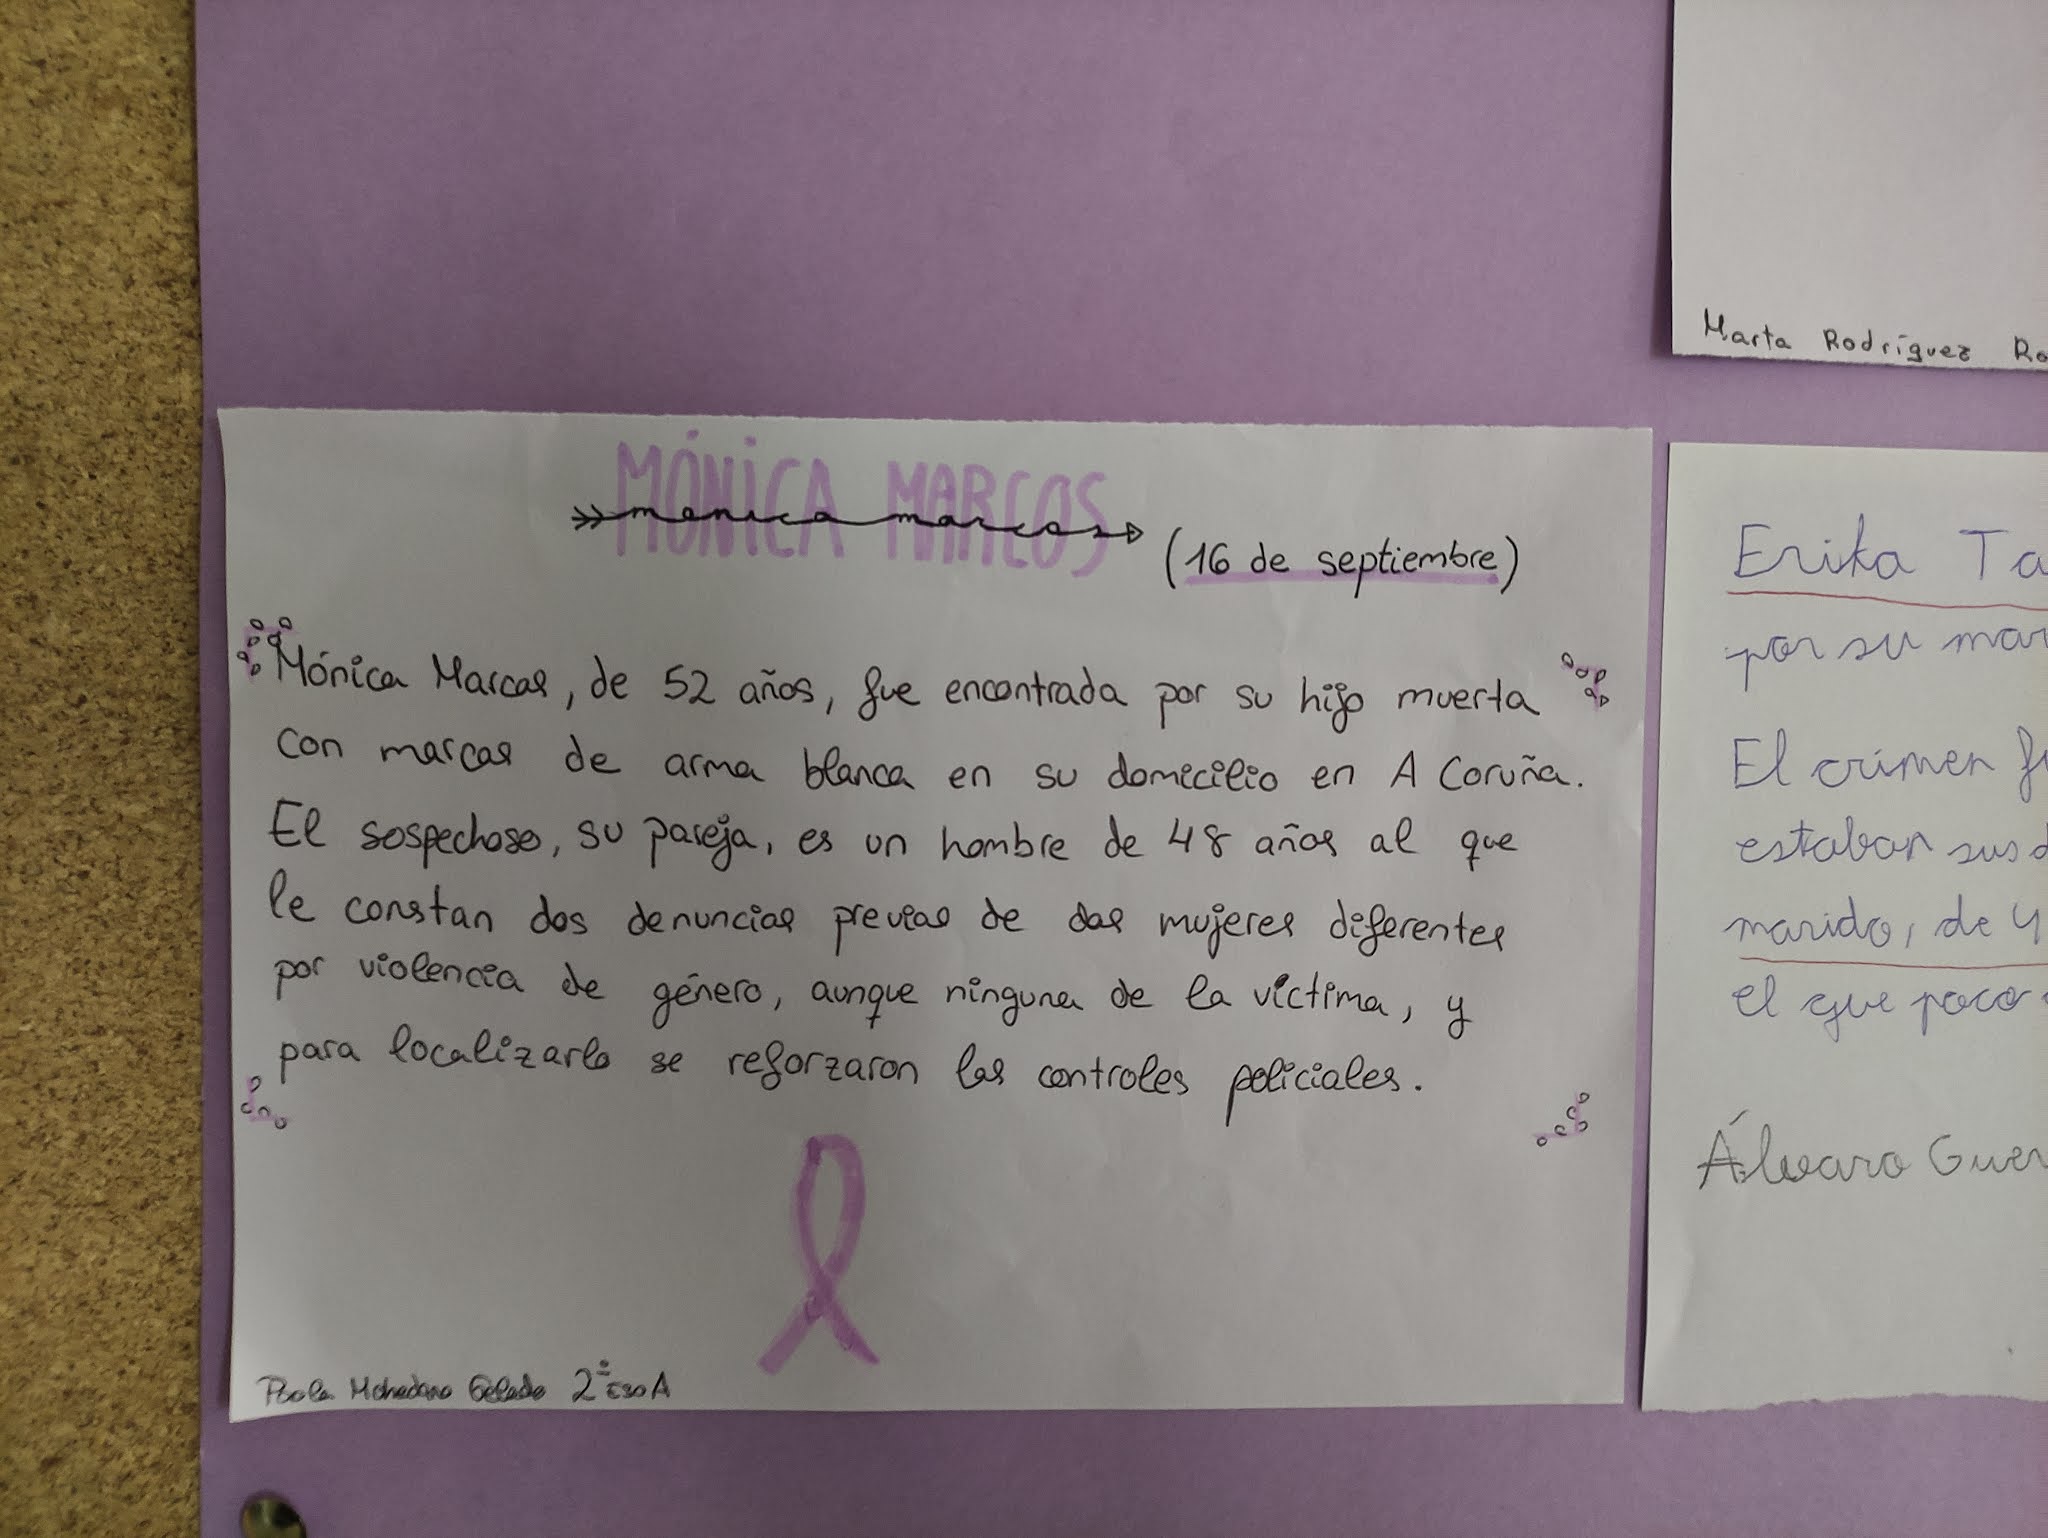 Marta Rodríguez Ro
MÓNICA MARCOS
monica marcos
(16 de septiembre)
Mónica Marcos, de 52 años, fue encontrada por su hijo muerta
con marcas de arma blanca en su domicilio en A Coruña.
El sospechoso, su pareja, es un hombre de 48 años al que
le constan dos denuncias previas de dos mujeres diferentes
por violencia de género, aunque ninguna de la víctima, y
para localizarlo se reforzaron los controles policiales.
Paola Mohedano Gelado 2º ESO A
Erika Ta
por su mar
El crimen fu
estaban sus d
marido, de 4
el que poco
Álvaro Guer